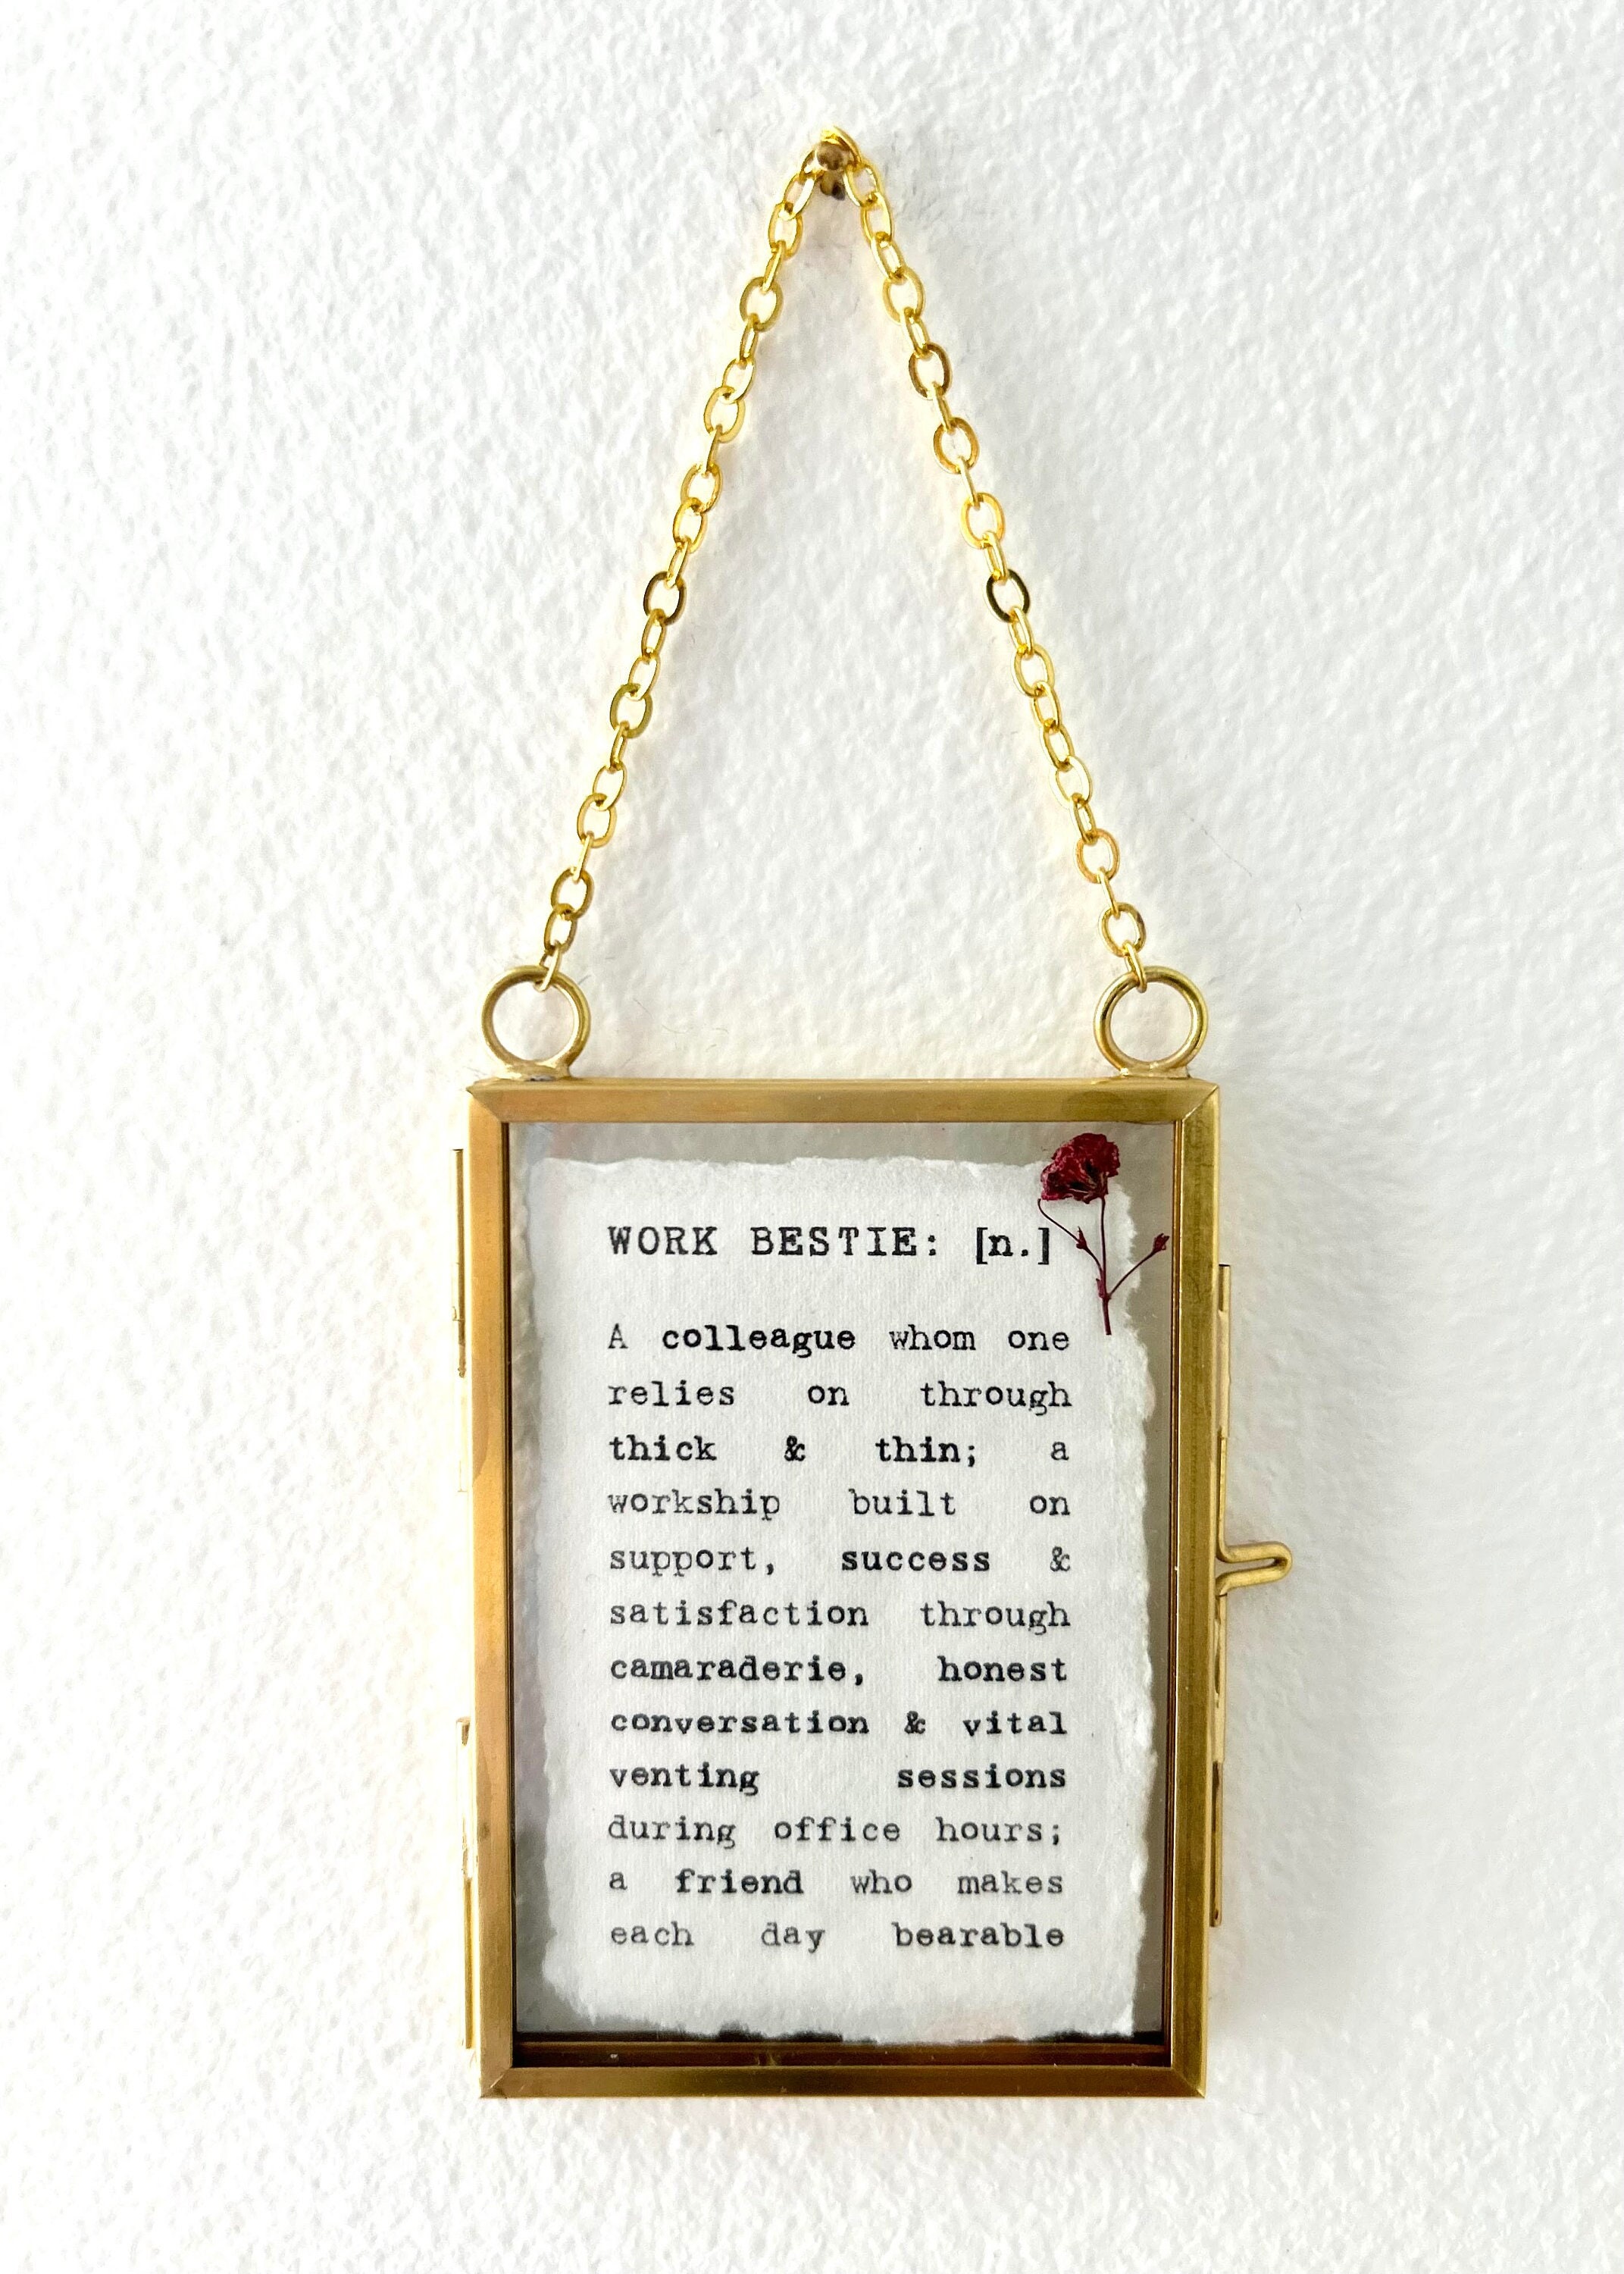 WORK BESTIE: [n.]
A colleague whom one
relies on through
thick & thin; a
workship built on
support, success &
satisfaction through
camaraderie, honest
conversation & vital
venting sessions
during office hours;
a friend who makes
each day bearable